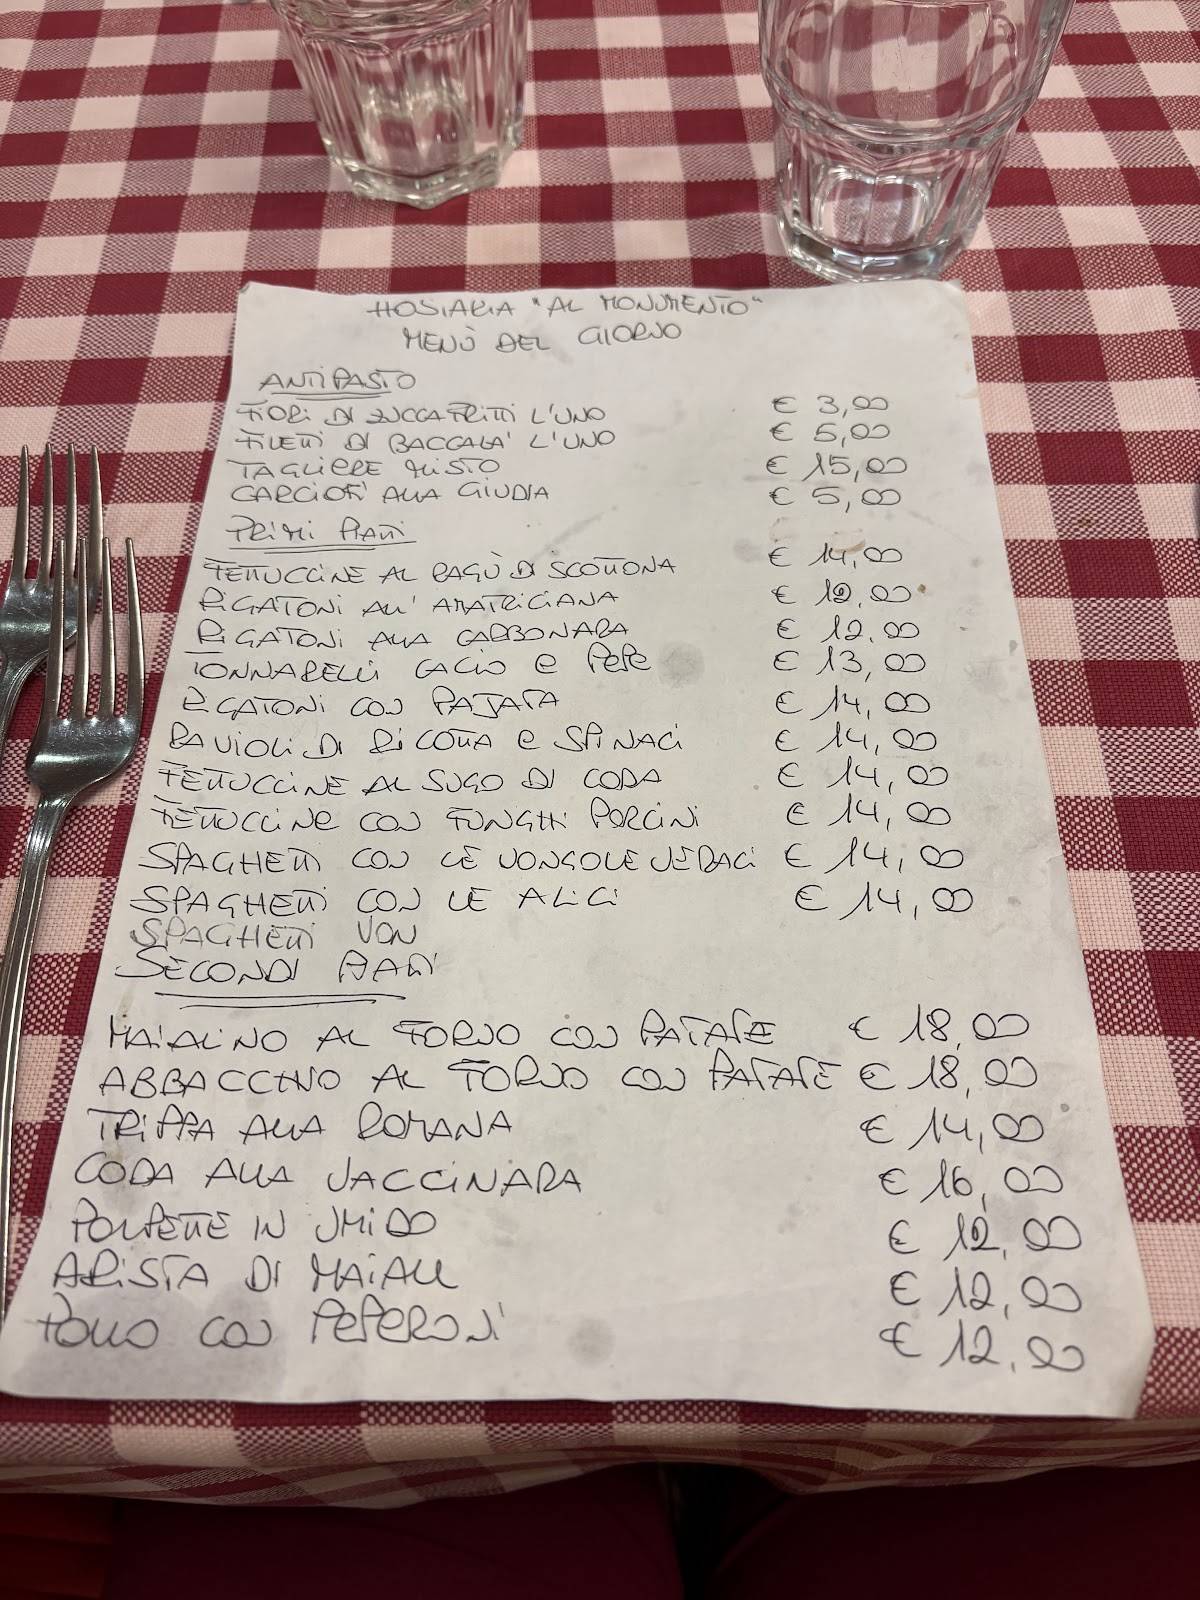 HOSTARIA "AL MONUMENTO"
MENÙ DEL GIORNO
ANTIPASTO
FIORI DI ZUCCA FRITTI L'UNO € 3,00
FILETTI DI BACCALA' L'UNO € 5,00
TAGLIERE MISTO € 15,00
CARCIOFI ALLA GIUDIA € 5,00
PRIMI PIATTI
FETTUCCINE AL RAGÙ DI SCOTTONA € 14,00
RIGATONI ALL'AMATRICIANA € 12,00
RIGATONI ALLA CARBONARA € 12,00
TONNARELLI CACIO e PEPE € 13,00
RIGATONI CON PAJATA € 14,00
RAVIOLI DI RICOTTA e SPINACI € 14,00
FETTUCCINE AL SUGO DI CODA € 14,00
FETTUCCINE CON FUNGHI PORCINI € 14,00
SPAGHETTI CON LE VONGOLE VERACI € 14,00
SPAGHETTI CON LE ALICI € 14,00
SPAGHETTI VON
SECONDI PIATTI
MAIALINO AL FORNO CON PATATE € 18,00
ABBACCHIO AL FORNO CON PATATE € 18,00
TRIPPA ALLA ROMANA € 14,00
CODA ALLA VACCINARA € 16,00
POLPETTE IN UMIDO € 12,00
ARISTA DI MAIALE € 12,00
POLLO CON PEPERONI € 12,00